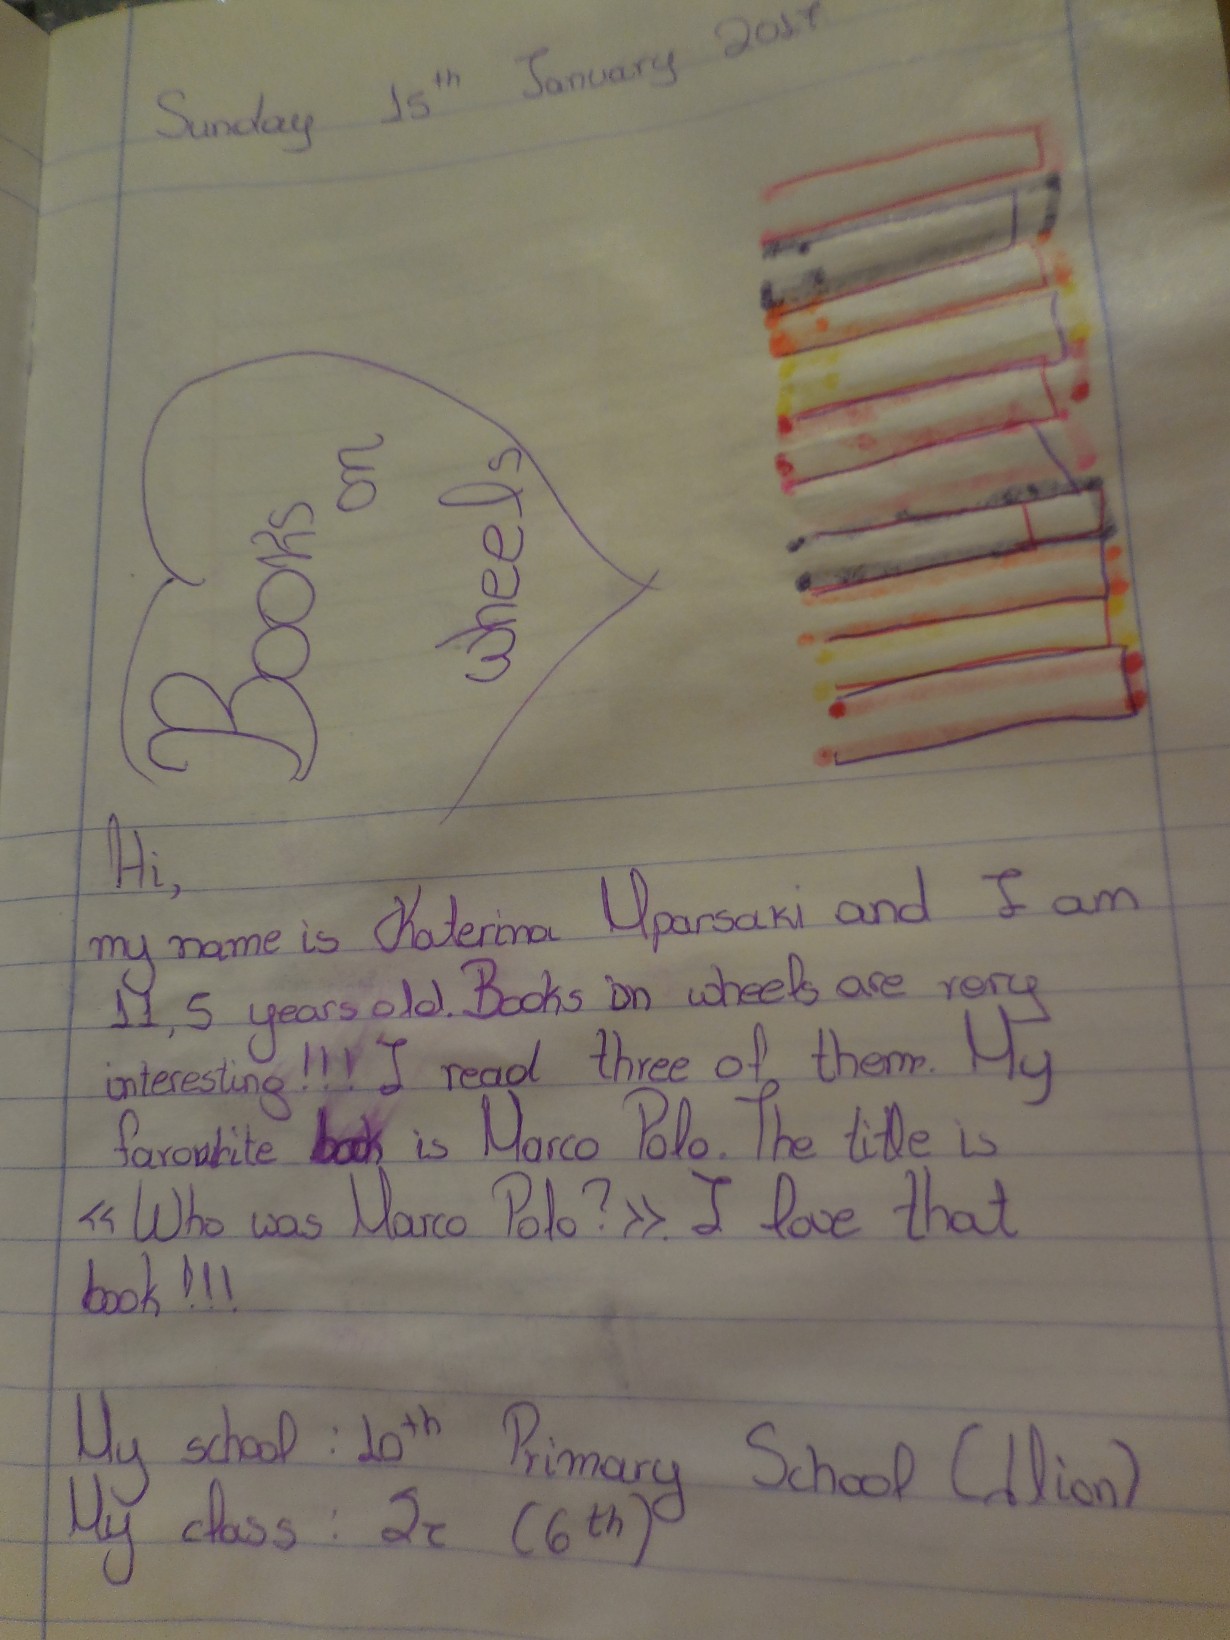 Sunday 15th January 2017
Books
on
wheels
Hi,
my name is Katerina Mparsaki and I am
11,5 years old. Books on wheels are very
interesting!!! I read three of them. My
favouhite book is Marco Polo. The title is
«Who was Marco Polo?». I love that
book!!!
My school: 10th Primary School (Ilion)
My class: (6th)